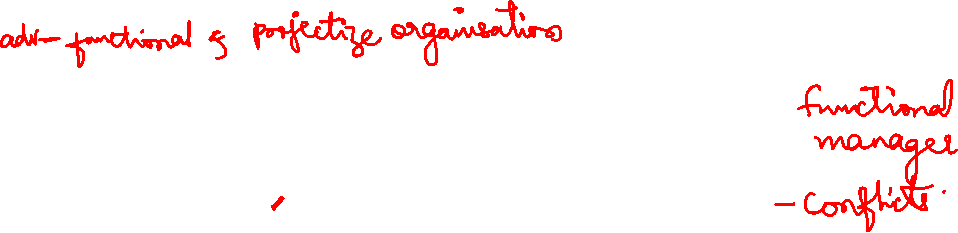 adv- functional & projectize organisations
functional
manager
- conflicts.